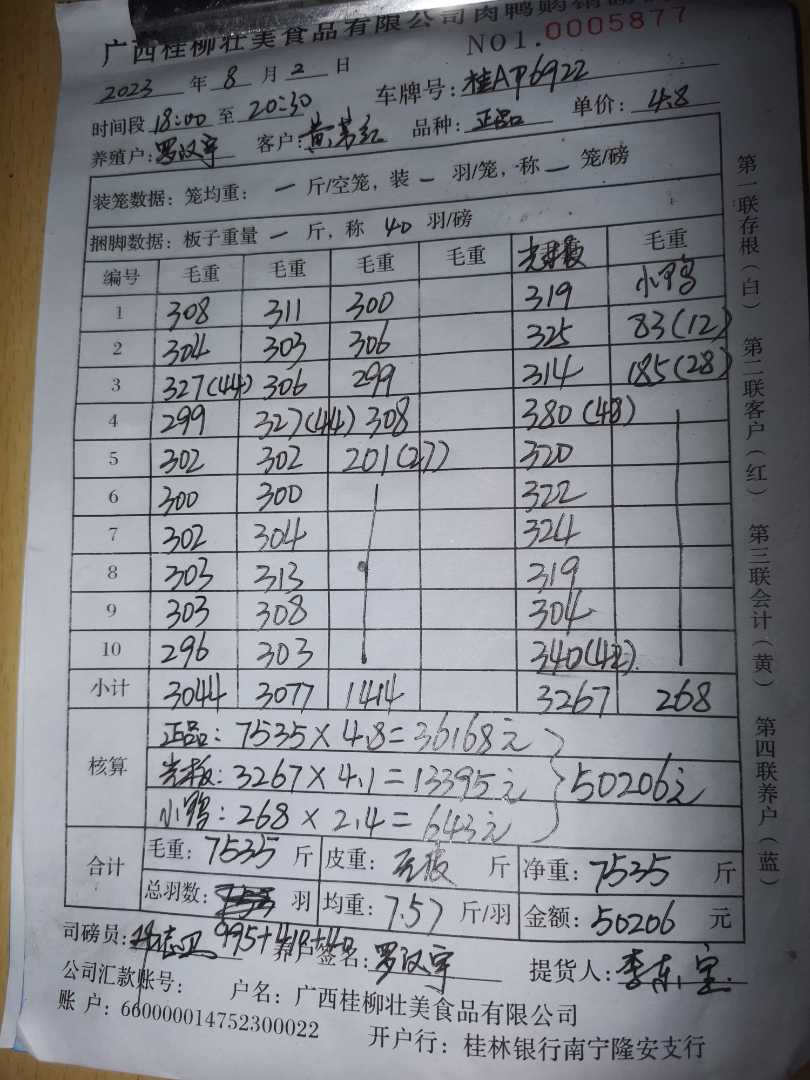 广西桂柳壮美食品有限公司肉鸭购销
NO1.0005877
2023 年 8 月 2 日
时间段 18:00 至 20:30 车牌号: 桂AP6922
养殖户: 罗汉宇 客户: 黄 品种: 正品 单价: 4.8
装笼数据: 笼均重: 一 斤/空笼, 装 一 羽/笼, 称 一 笼/磅
捆脚数据: 板子重量 一 斤, 称 40 羽/磅
编号 毛重 毛重 毛重 毛重 光板 毛重
小鸭
1 308 311 300 319
2 304 303 306 325 83(12)
3 327(44) 306 299 314 185(28)
4 299 327(44) 308 380(48)
5 302 302 201(27) 320
6 300 300 322
7 302 304 324
8 303 313 319
9 303 308 304
10 296 303 340(42)
小计 3044 3077 1414 3267 268
核算
正品: 7535×4.8=36168元
光板: 3267×4.1=13395元
小鸭: 268×2.4=643元
50206元
合计
毛重: 7535 斤 皮重: 斤 净重: 7535 斤
总羽数: 羽 均重: 7.57 斤/羽 金额: 50206 元
995+410+40
司磅员: 养户签名: 罗汉宇 提货人: 李东宝
公司汇款账号: 户名: 广西桂柳壮美食品有限公司
账 户: 660000014752300022 开户行: 桂林银行南宁隆安支行
第一联存根(白) 第二联客户(红) 第三联会计(黄) 第四联养户(蓝)